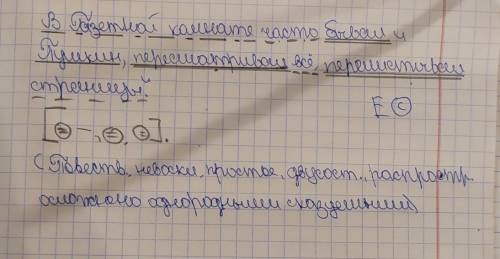 В Газетной комнате часто бывал и
Пушкин, пересматривал всё, перелистывал
страницы.
Е С
[⊜ —, ⊜, ⊜].
(Повеств., невоскл., простое, двусост., распростр.
осложнено однородными сказуемыми)